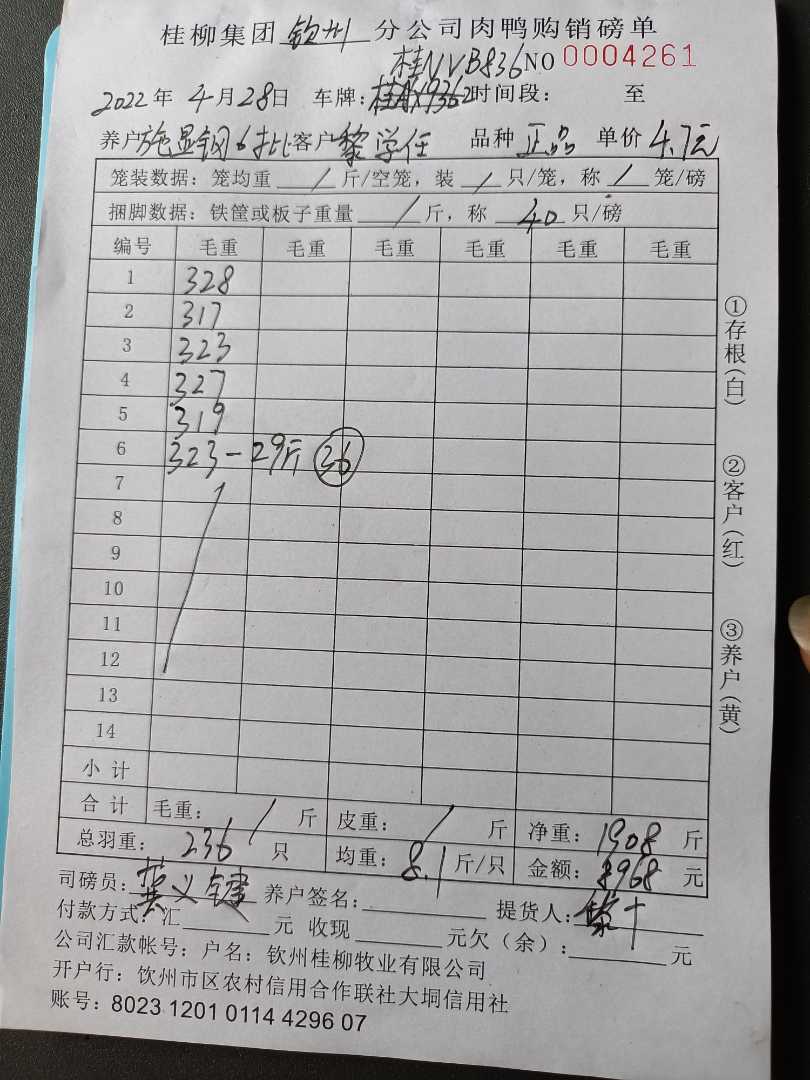 桂柳集团 钦州 分公司肉鸭购销磅单
桂NVB836 NO 0004261
2022年 4月28日 车牌: 时间段: 至
养户施显钢6批客户黎学任 品种 正品 单价 4.7元
笼装数据:笼均重 / 斤/空笼,装 / 只/笼,称 / 笼/磅
捆脚数据:铁筐或板子重量 / 斤,称 40 只/磅
编号 毛重 毛重 毛重 毛重 毛重 毛重
1 328
2 317
3 323
4 327
5 319
6 323-29斤 36
7
8
9
10
11
12
13
14
小计
合计 毛重: / 斤 皮重: / 斤 净重: 1908 斤
总羽重: 236 只 均重: 8.1 斤/只 金额: 8968 元
司磅员: 义键 养户签名: 提货人:黎
付款方式:汇 元 收现 元欠(余): 元
公司汇款帐号:户名:钦州桂柳牧业有限公司
开户行:钦州市区农村信用合作联社大垌信用社
账号:8023 1201 0114 4296 07
①存根(白)
②客户(红)
③养户(黄)